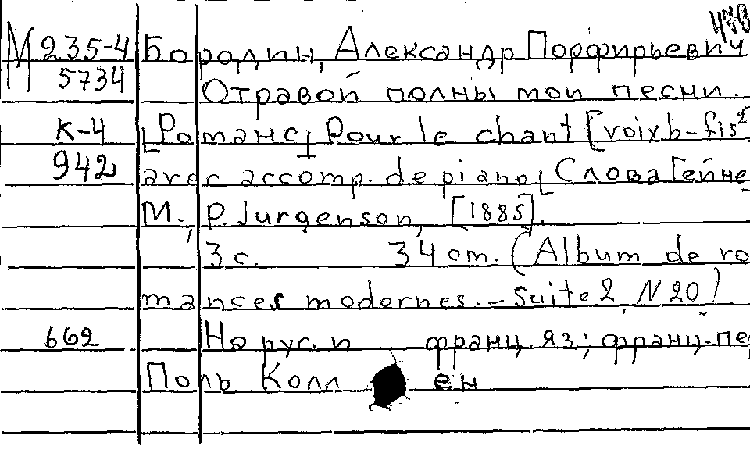 М 235-4 Бородин, Александр Порфирьевич
5734 Отравой полны мои песни.
К-4 [Романс] Pour le chant [voix b-fis²
942 avec accomp. de piano[ Слова Гейне
М., P. Jurgenson, [1885].
3 с. 34 см. (Album de ro
mances modernes. - Suite 2, N 20)
662 На рус. и франц. яз; франц. пе
Поль Колл ен